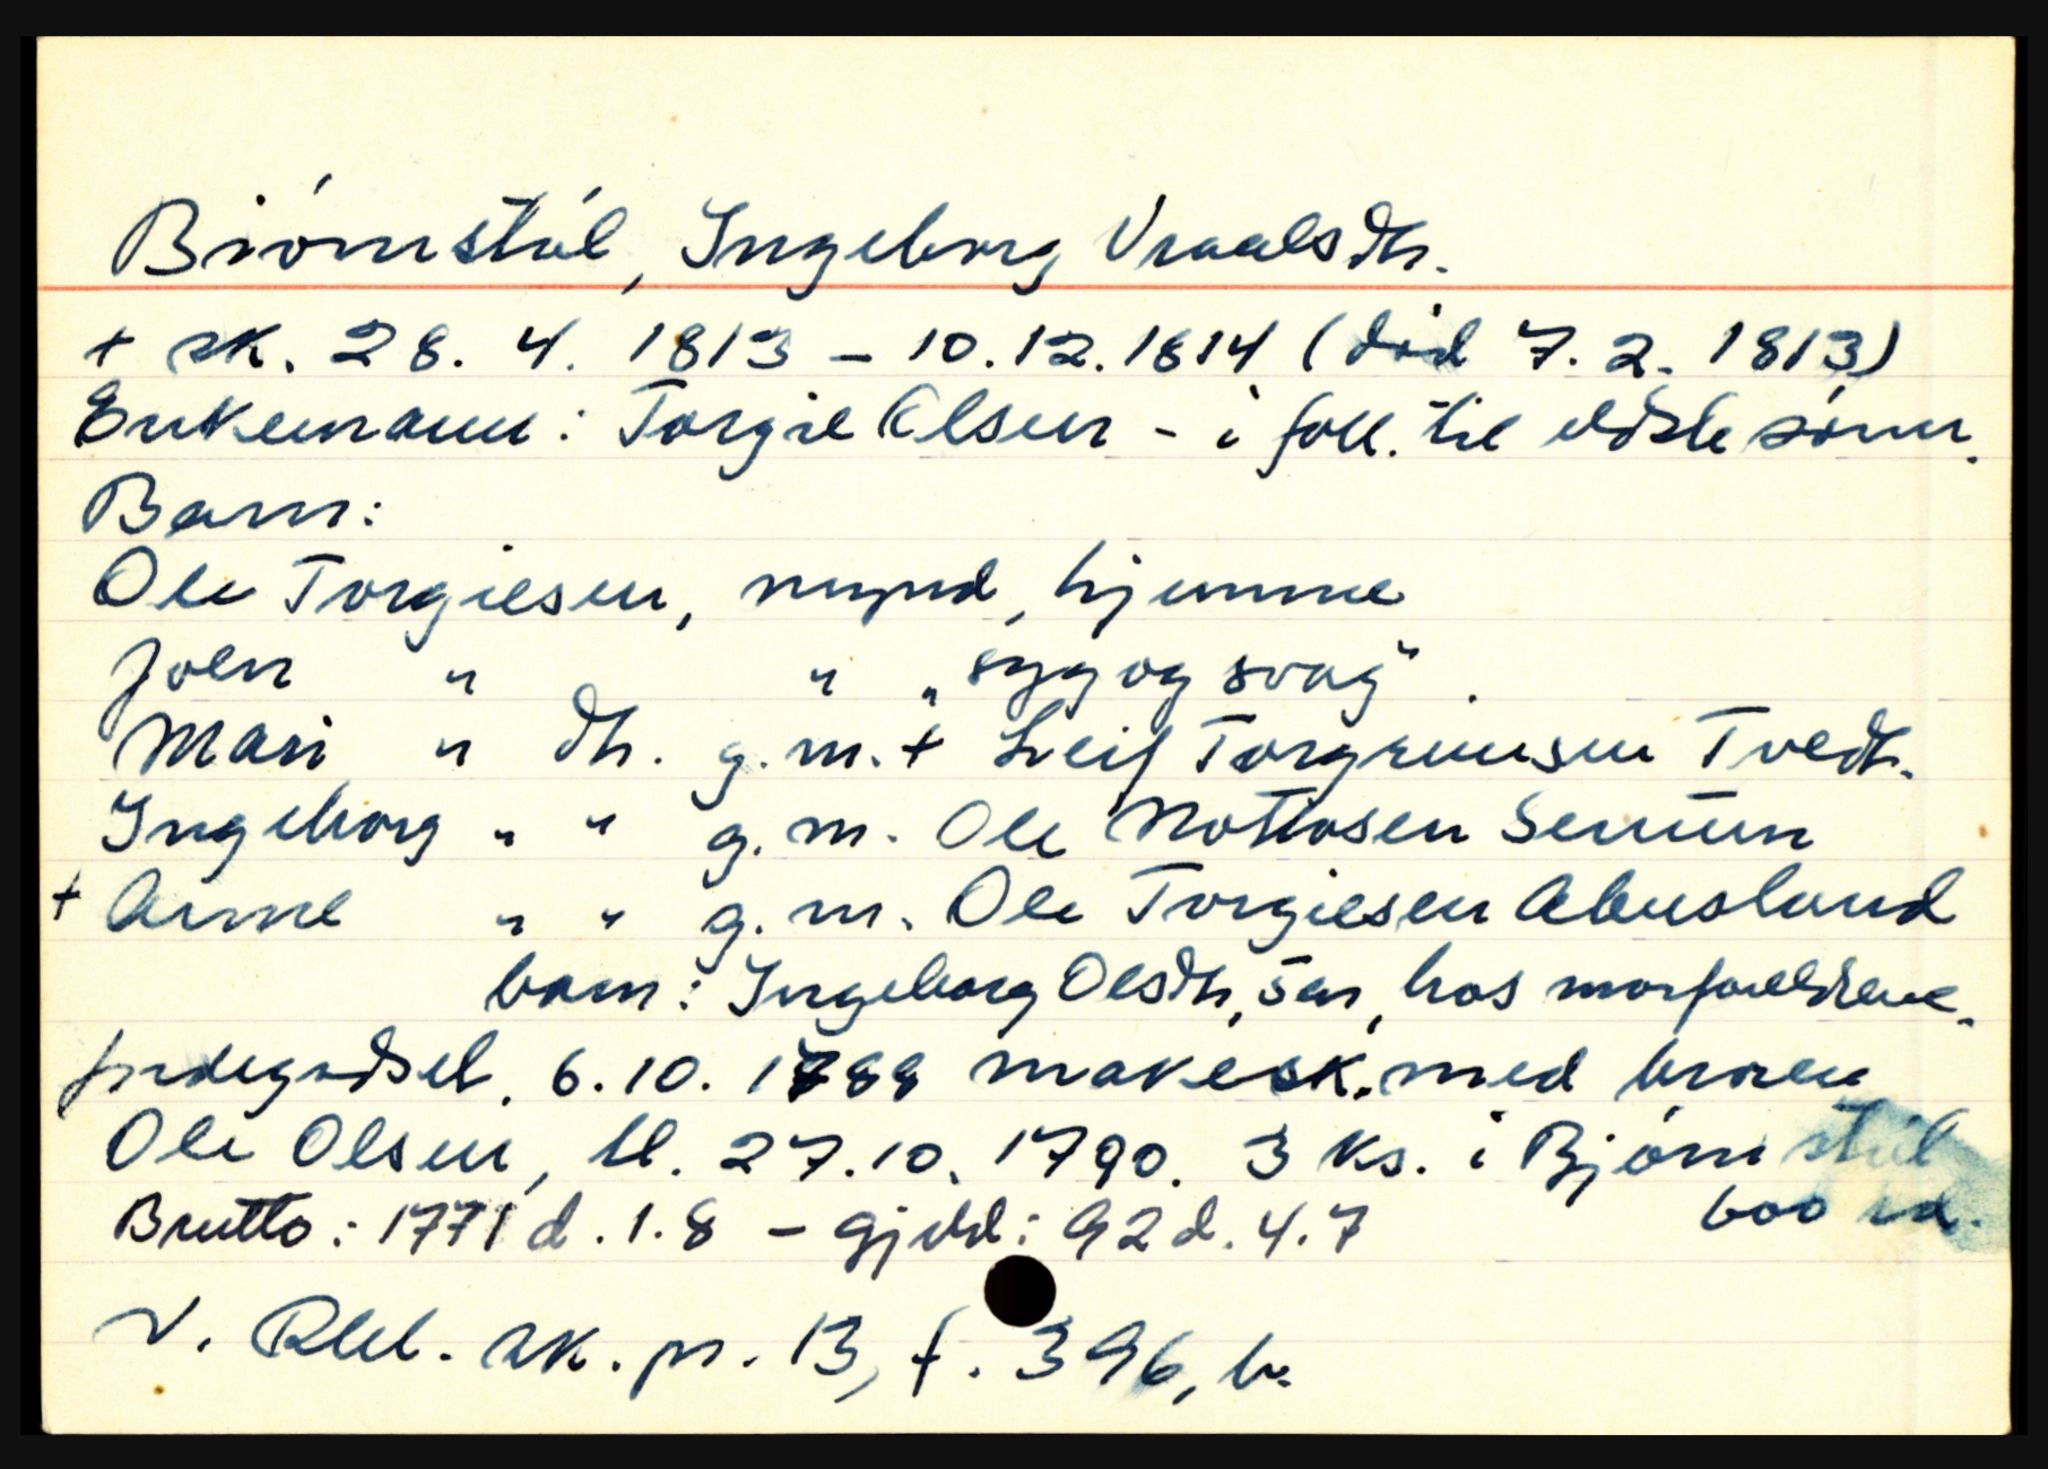 Biórnstól, Ingeborg Vraalsdtr.
+ sk. 28. 4. 1813 - 10.12.1814 (død 7. 2. 1813)
Enkemann: Torgil Olsen - i foll. til eldste sønn.
Barn:
Ole Torgilsen, mynd, hjemme
Joen " " "syg og svag".
Mari " dtr. g.m. + Leif Torgrimsen Tvedt.
Ingeborg " " g.m. Ole Notlosen Senum
+ Anne " " g.m. Ole Torgilsen Abusland
barn: Ingeborg Olsdtr, 5 år, hos morforeldrene.
jordegodset. 6.10. 1788 makesk. med broren
Ole Olsen, tl. 27.10. 1790. 3 ks. i Bjórnstól
600 rd.
Brutto: 1771 d. 1.8 - gjeld: 92 d. 4.7
V. Rbl. sk. pr. 13, f. 396, b.